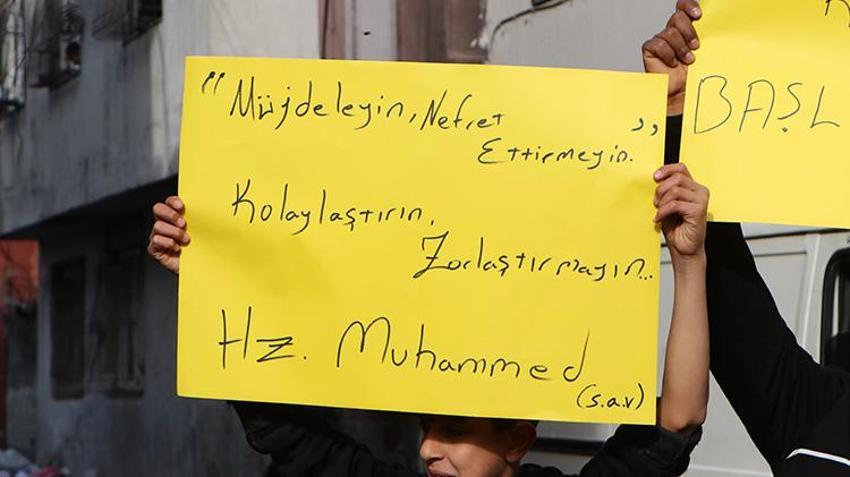 "Müjdeleyin, Nefret
Ettirmeyin."
Kolaylaştırın,
Zorlaştırmayın...
Hz. Muhammed
(s.a.v)
BAŞL